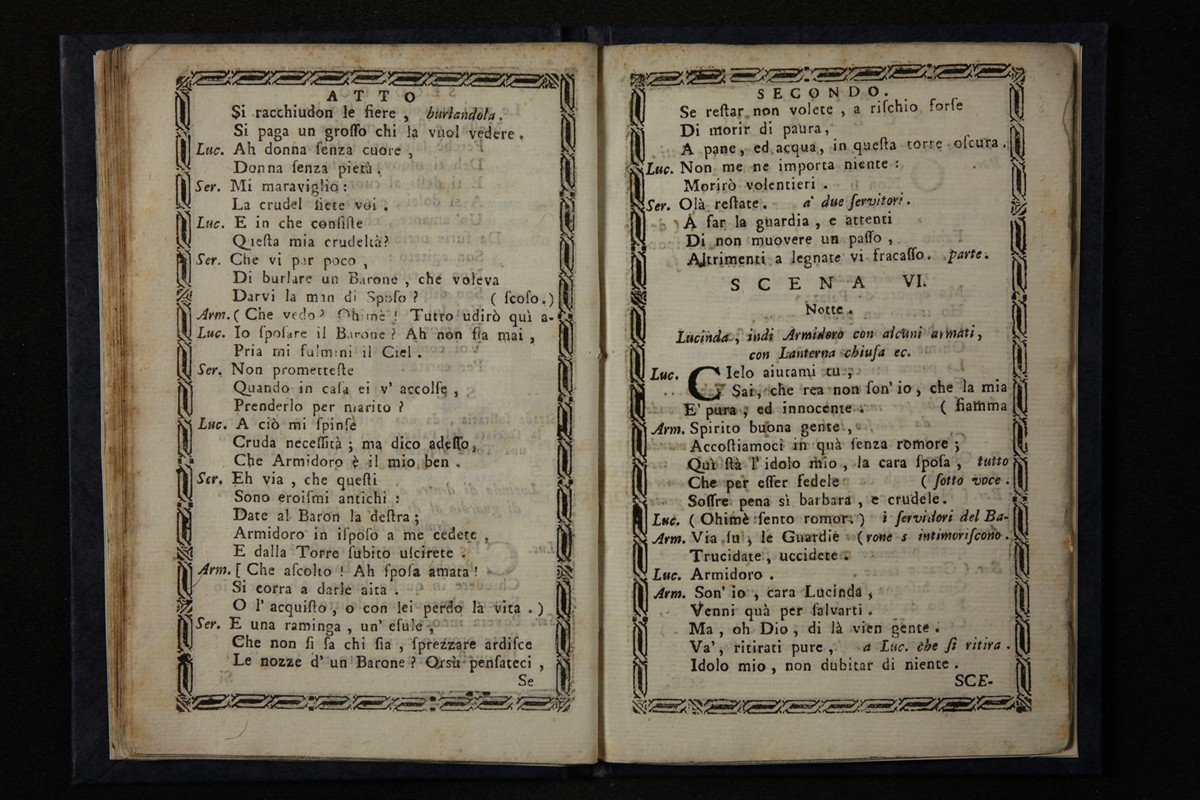 ATTO
Si racchiudon le fiere, burlandola.
Si paga un groſſo chi la vuol vedere.
Luc. Ah donna ſenza cuore,
Donna ſenza pietà.
Ser. Mi maraviglio:
La crudel ſiete voi.
Luc. E in che conſiſte
Queſta mia crudeltà?
Ser. Che vi par poco,
Di burlare un Barone, che voleva
Darvi la man di Spoſo? (ſcoſo.)
Arm. (Che vedo? Ohimè! Tutto udirò quì a-
Luc. Io ſpoſare il Barone? Ah non ſia mai,
Pria mi fulmini il Ciel.
Ser. Non prometteſte
Quando in caſa ei v' accolſe,
Prenderlo per marito?
Luc. A ciò mi ſpinſe
Cruda neceſſità; ma dico adeſſo,
Che Armidoro è il mio ben.
Ser. Eh via, che queſti
Sono eroiſmi antichi:
Date al Baron la deſtra;
Armidoro in iſpoſo a me cedete,
E dalla Torre ſubito uſcirete.
Arm. [Che aſcolto! Ah ſpoſa amata!
Si corra a darle aita.
O l' acquiſto, o con lei perdo la vita.)
Ser. E una raminga, un' eſule,
Che non ſi ſa chi ſia, ſprezzare ardiſce
Le nozze d' un Barone? Orsù penſateci,
Se
SECONDO.
Se reſtar non volete, a riſchio forſe
Di morir di paura,
A pane, ed acqua, in queſta torre oſcura.
Luc. Non me ne importa niente:
Morirò volentieri.
Ser. Olà reſtate. a' due ſervitori.
A far la guardia, e attenti
Di non muovere un paſſo,
Altrimenti a legnate vi fracaſſo. parte.
SCENA VI.
Notte.
Lucinda, indi Armidoro con alcuni armati,
con Lanterna chiuſa ec.
Luc. CIelo aiutami tu,
Sai, che rea non ſon' io, che la mia
E' pura, ed innocente. (fiamma
Arm. Spirito buona gente,
Accoſtiamoci in quà ſenza romore;
Quì ſtà l' idolo mio, la cara ſpoſa, tutto
Che per eſſer fedele (ſotto voce.
Soffre pena sì barbara, e crudele.
Luc. (Ohimè ſento romor.) i ſervidori del Ba-
Arm. Via ſu, le Guardie (rone s intimoriſcono.
Trucidate, uccidete.
Luc. Armidoro.
Arm. Son' io, cara Lucinda,
Venni quà per ſalvarti.
Ma, oh Dio, di là vien gente.
Va', ritirati pure, a Luc. che ſi ritira.
Idolo mio, non dubitar di niente.
SCE-